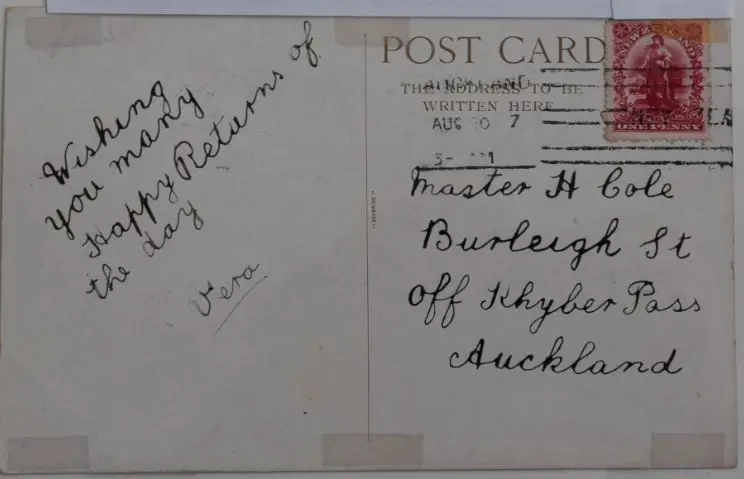 Wishing
you many
Happy Returns of
the day
Vera
POST CARD
THE ADDRESS TO BE
WRITTEN HERE
AUCKLAND
AUG 7
NEW ZEALAND
ONE PENNY
Master H Cole
Burleigh St
off Khyber Pass
Auckland